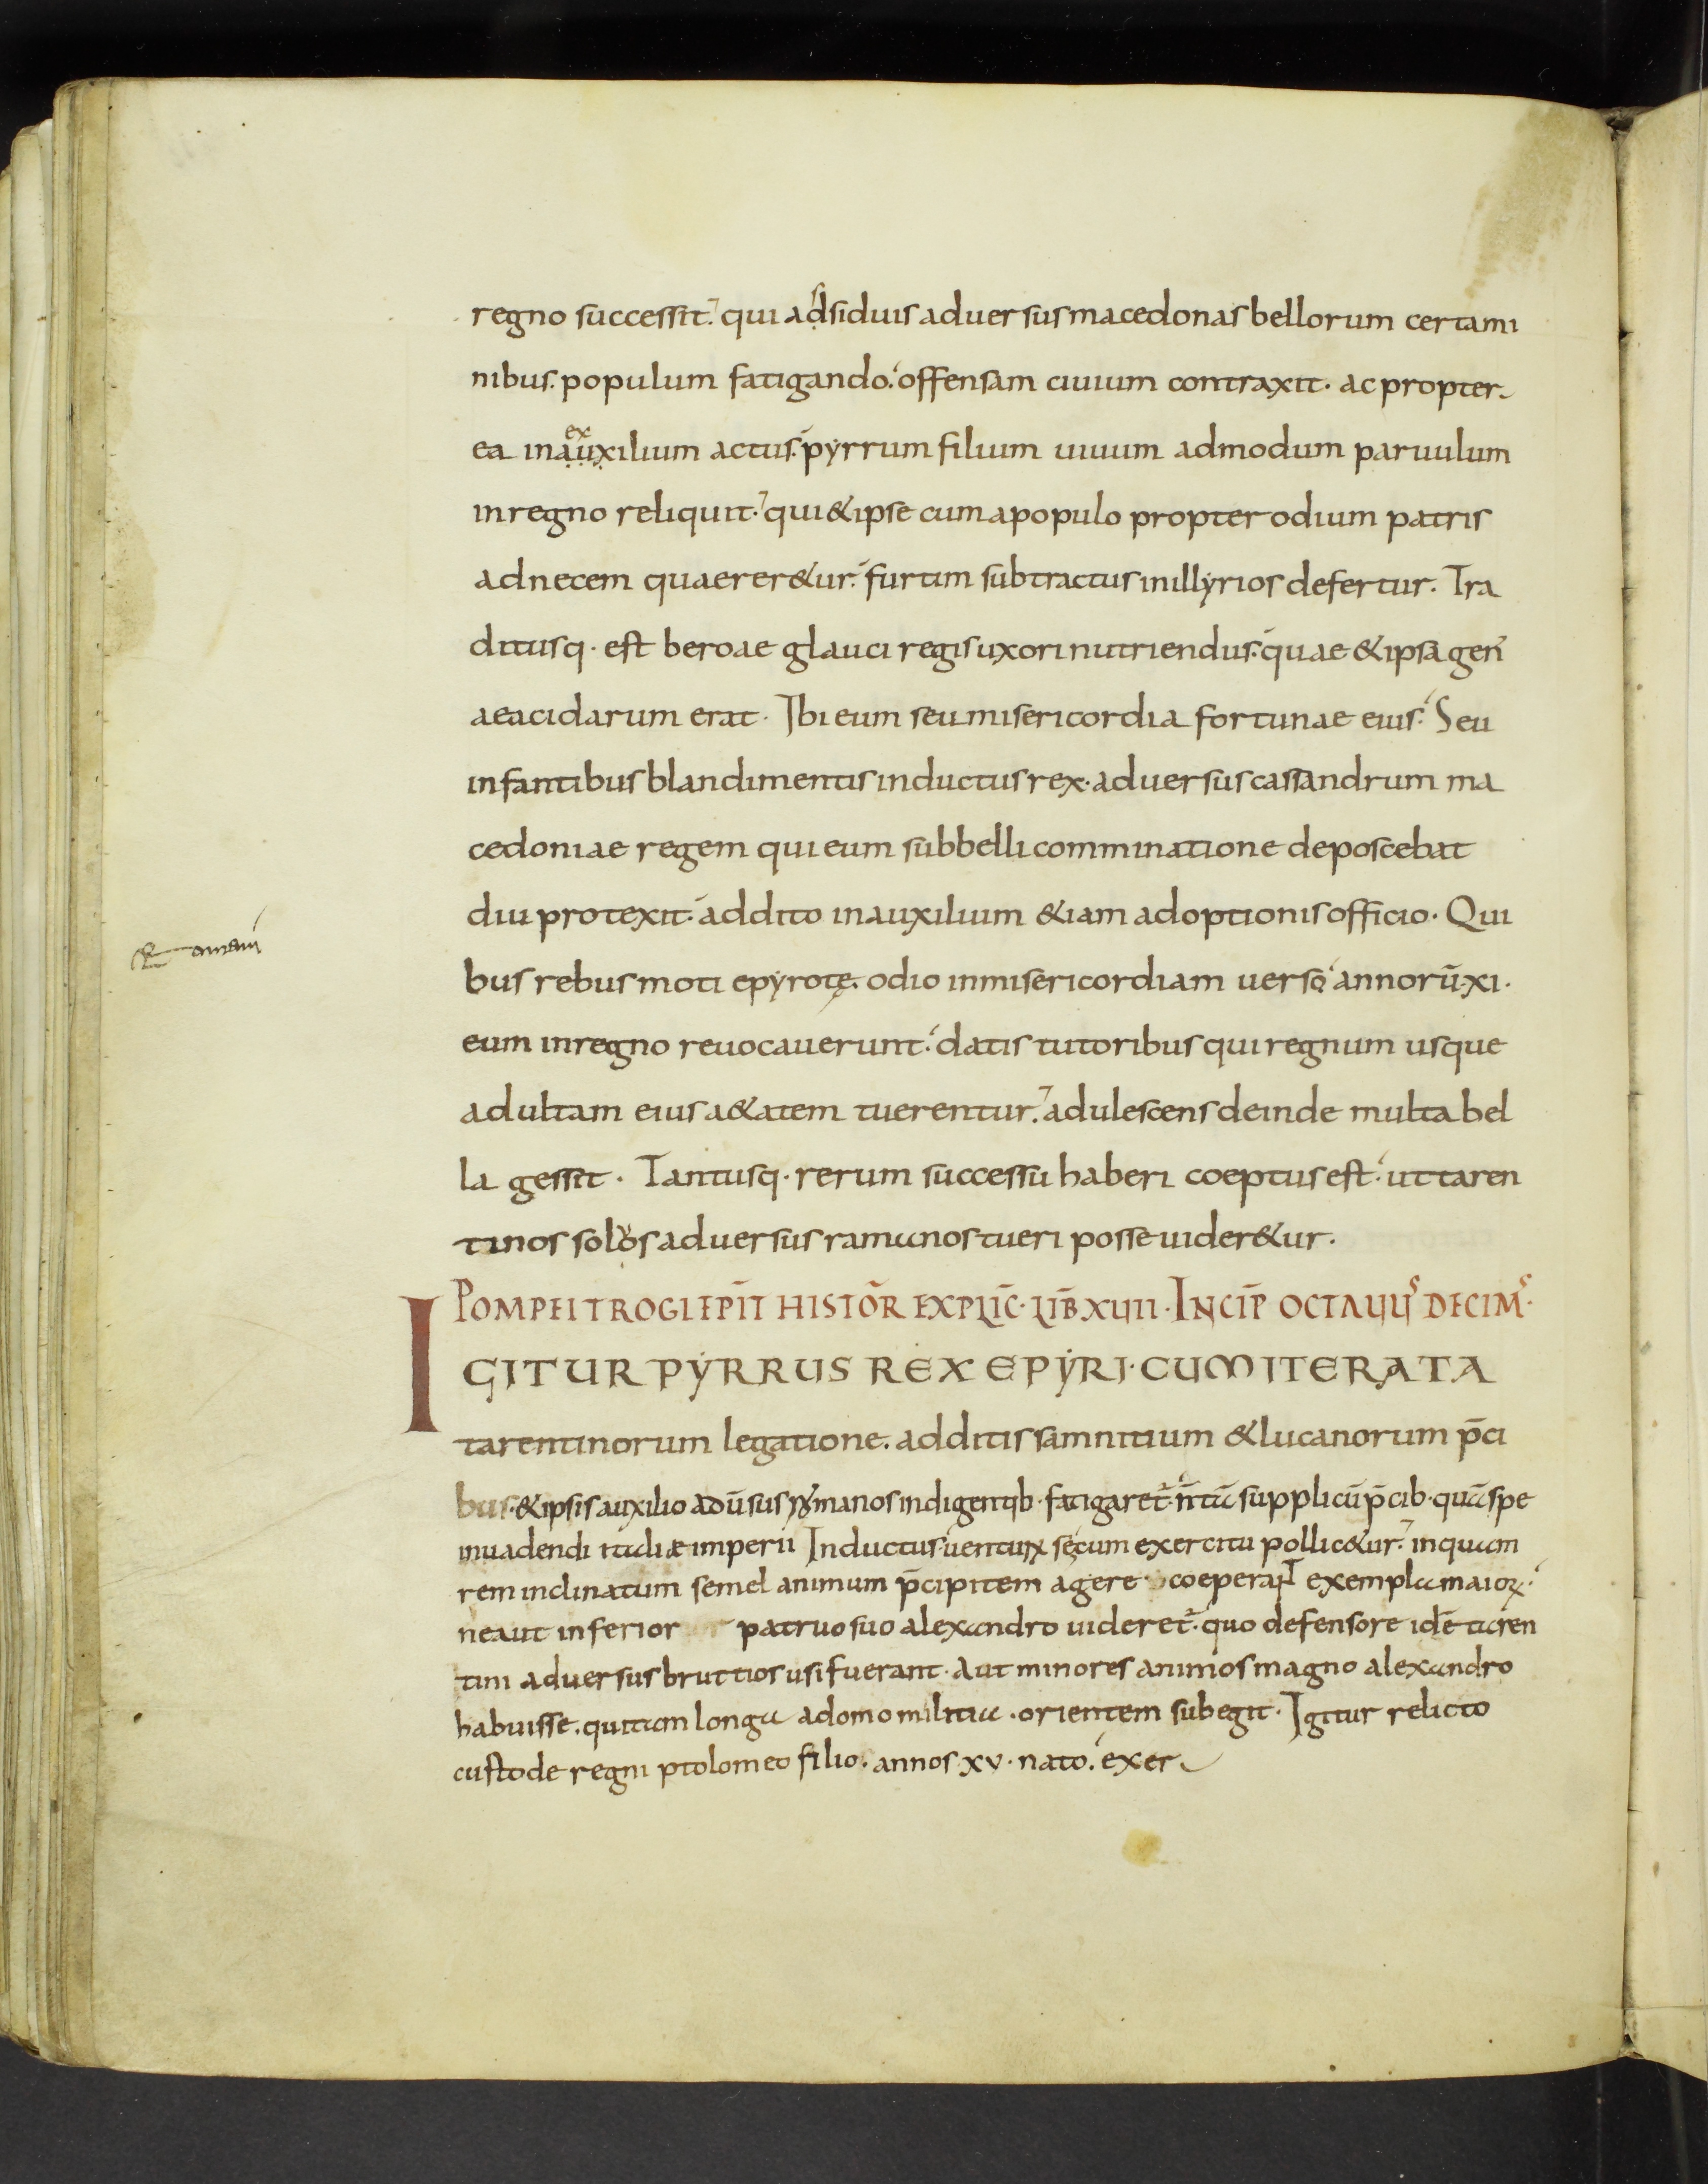 regno successit. qui adsiduis aduersus macedonas bellorum certami
nibus. populum fatigando. offensam ciuium contraxit. ac propter
ea in auxilium actus. pyrrum filium uiuum admodum paruulum
ex
in regno reliquit. qui & ipse cum a populo propter odium patris
ad necem quaerer&ur. furtim subtractus in illyrios defertur. Tra
ditusq. est beroae glauci regis uxori nutriendus. quae & ipsa gen̄
aeacidarum erat. Ibi eum seu misericordia fortunae eius. Seu
infantibus blandimentis inductus rex. aduersus cassandrum ma
cedoniae regem qui eum sub belli comminatione deposcebat
diu protexit. addito in auxilium &iam adoptionis officio. Qui
bus rebus moti epyrotę. odio in misericordiam uerso annorū. xi.
eum in regno reuocauerunt. datis tutoribus qui regnum usque
adultam eius a&atem tuerentur. adulescens deinde multa bel
la gessit. Tantusq. rerum successu haberi coeptus est. ut taren
tinos solos aduersus ramanos tueri posse uider&ur.
POMPEI TROGI EPIT̄ HISTOR̄ EXPLIC̄. LIB̄ XVIII. INCIP̄ OCTAUUS DECIMS.
IGITUR PYRRUS REX EPYRI. CUM ITERATA
tarentinorum legatione. additis samnitium & lucanorum p̄ci
bus. & ipsis auxilio adūsus romanos indigentib. fatigaret̄. n̄ tā supplicū p̄cib. quā spe
inuadendi italiæ imperii Inductus uenturꝝ secum exercitu pollic&ur. in quam
rem inclinatum semel animum p̄cipitem agere coeperant exempla maioꝝ.
ne aut inferior patruo suo alexandro uideret̄. quo defensore idē taren
tini aduersus bruttios usi fuerant. Aut minores animos magno alexandro
habuisse. qui tam longa a domo militia. orientem subegit. Igitur relicto
custode regni ptolomeo filio. annos xv. nato. exer